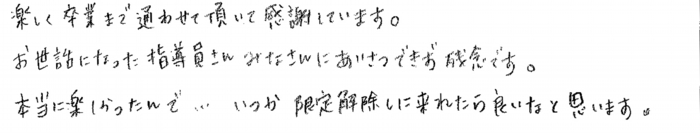 楽しく卒業まで通わせて頂いて感謝しています。
お世話になった指導員さんみなさんにあいさつできず残念です。
本当に楽しかったんで… いつか限定解除しに来れたら良いなと思います。